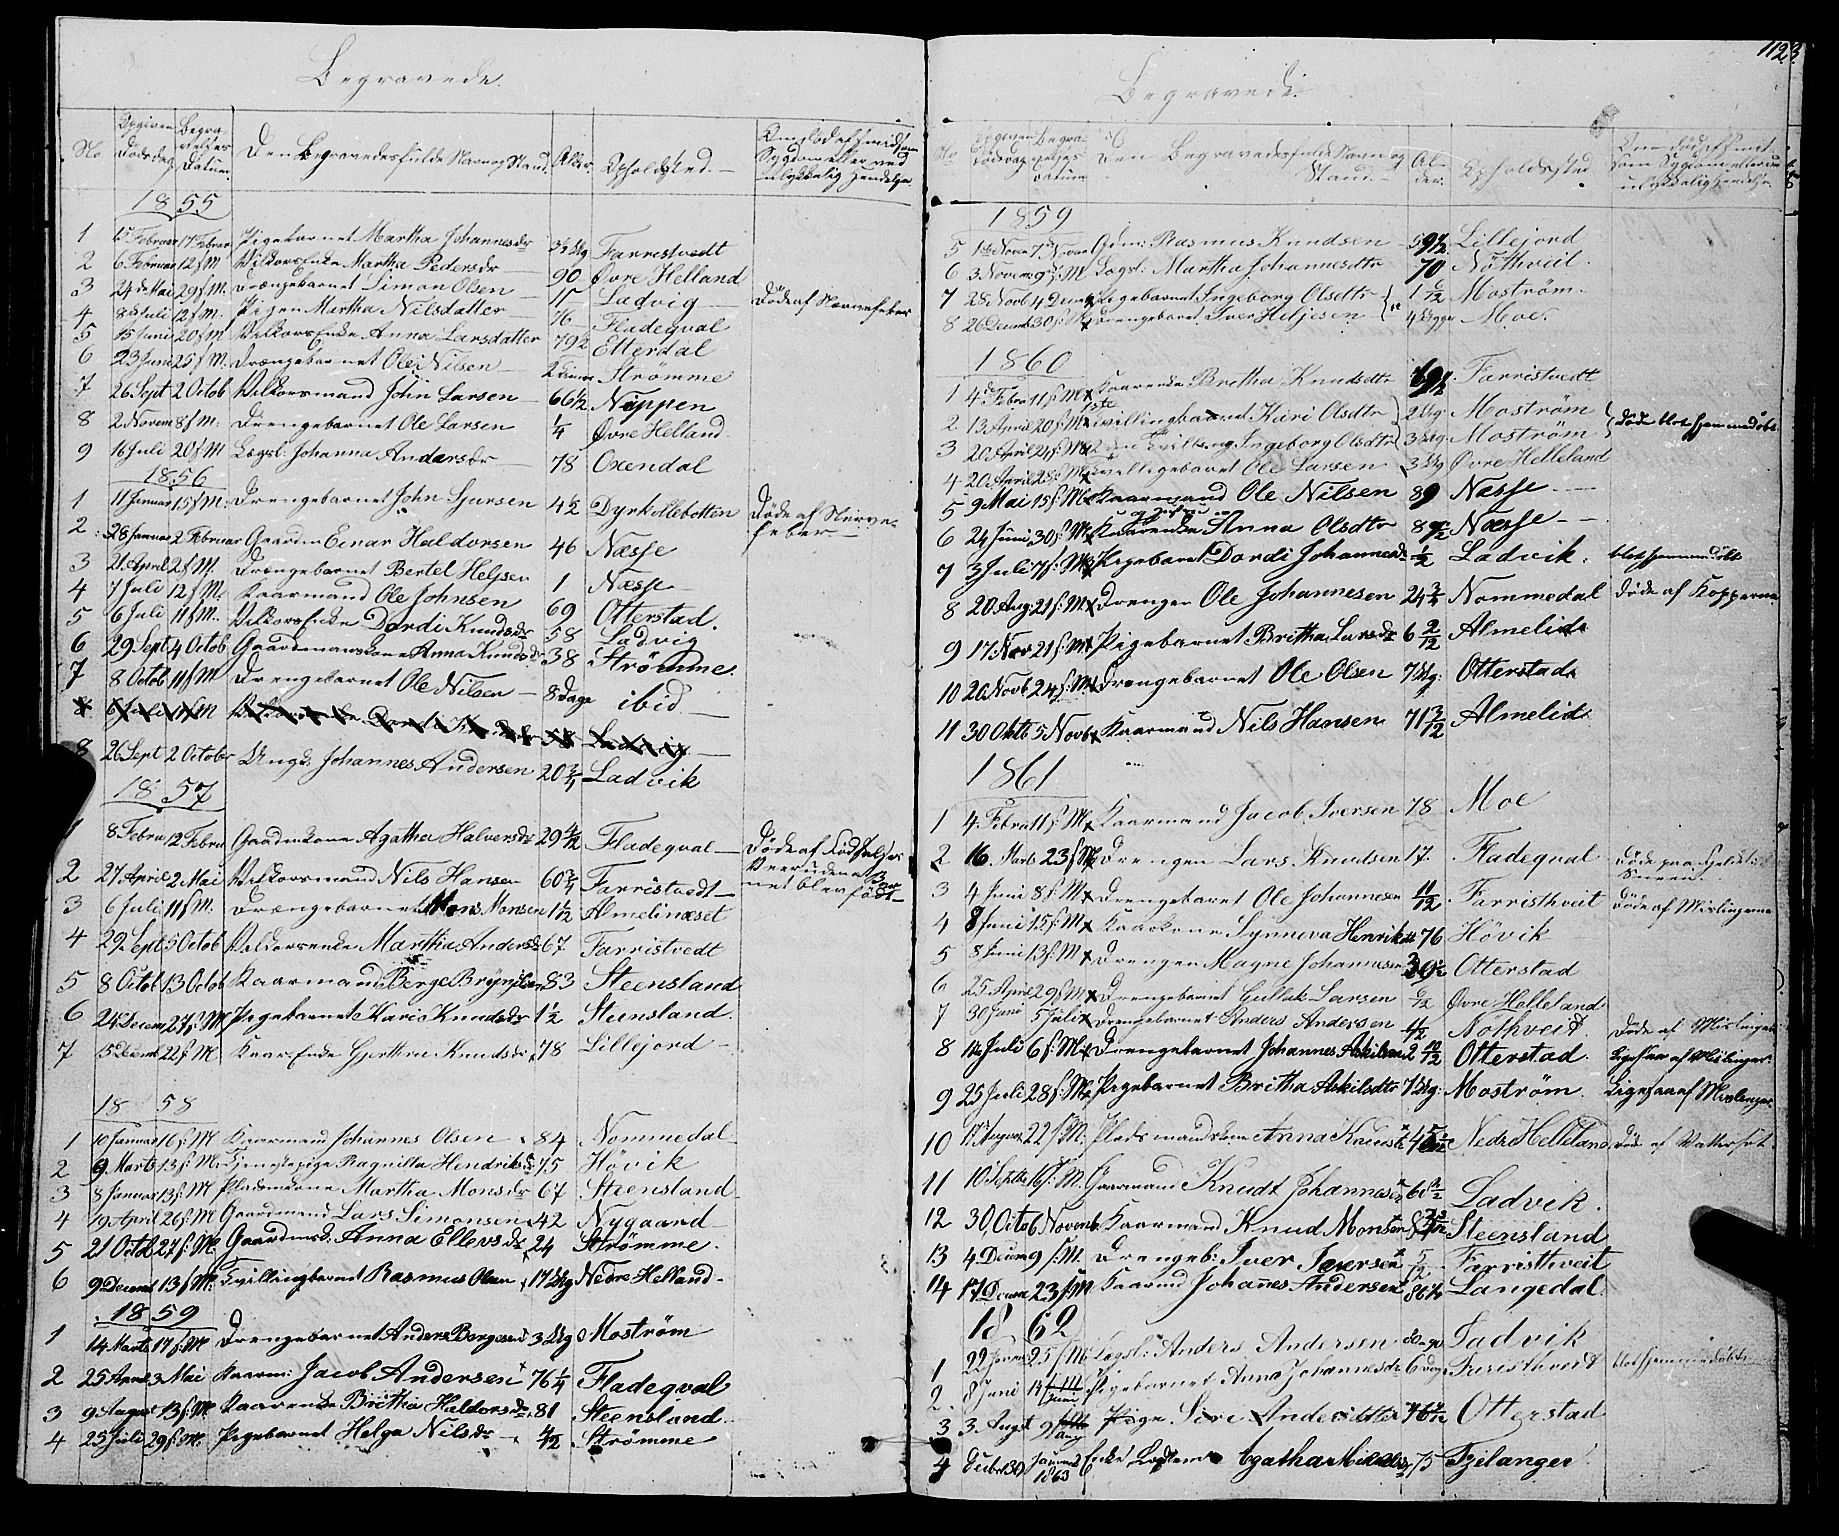 Begravede.
No Opgiven Dødsdag Begravelses Datum. Den Begravedes fulde Navn og Stand. Alder. Opholdsted. Om død af smidsom Sygdom eller ved ulykkelig Hendelse
1855
1 15 Februar 17 Februar Pigebarnet Martha Johannesdr 3½ Farristvedt
2 6 Februar 12 f M Vilkorsenke Martha Pedersdr 90 Øvre Helland
3 24de Mai 29 f M. Drængebarnet Simon Olsen Ladvig Døde af Nervefeber
4 8de Juli 12 f M. Pigen Martha Nilsdatter 76 Fladeqval
5 15 Juni 20 f M Vilkorsenke Anna Larsdatter 79½ Etterdal
6 23 Juni 25 f M. Drængebarnet Ole Nilsen 2 Timer Strömme
7 26 Sept 2 Octob Vilkorsmand John Larsen 66½ Nippen
8 2 Novem 8 f M. Drengebarnet Ole Larsen ¼ Øvre Helland
9 16 Juli 20 f M Logsl: Johanna Andersdr 78 Oxendal
1856
1 11 Januar 15 f M. Drengebarnet John Sjursen 4½ Dyrkollebotten Døde af Nerve-
2 28 Januar 2 Februar Gaardm Einar Haldorsen 46 Næsse feber
3 21 April 2 f M. Drængebarnet Bertel Heljesen 1 Næsse
4 7 Juli 12 f M. Kaarmand Ole Johnsen 69 Otterstad.
5 6 Juli 11 f M. Vilkorsenke Dordi Knudsdr 58 Ladvig
6 29 Sept 4 Octob Gaardmandskone Anna Knudsdr 38 Strömme.
7 8 Octob 11 f M Drengebarnet Ole Nilsen 8 Dage ibid
8 26 Sept 2 October Ungk: Johannes Andersen 20¾ Ladvik
1857
8 Febru 12 Febru Gaardmkone Agatha Halversdr 29 4/12 Fladeqval Døde af Fødselsen
2 27 April 2 Mai Vilkorsmand Nils Hansen 60¾ Farristvedt
3 6 Juli 11 f M. Drængebarnet Mons Monsen 1½ Almelinæset
4 29 Sept 5 Octob Vilkorsenke Martha Andersdr 67 Farristvedt
5 8 Octob 13 Octob Kaarmand Berge Brynjelsen 83 Steensland
6 24 Decem 27 f M Pigebarnet Kari Knudsdr 1½ Steensland.
7 15 Decemb 22 f M. Kaarenke Gjertrue Knudsdr 78 Lillejord
1858
1 10 Januar 16 f M Kaarmand Johannes Olsen 84 Nommedal
2 9 Marts 13 f M. Tjenestepige Ragnilla Hendriksdr 75 Høvik
3 8 Januar 13 f M Pladsmkone Martha Monsdr 67 Steensland
4 19 April 26 f M Gaardmand Lars Simonsen 42 Nygaard
5 21 Octob 27 f M. Gaardmsk: Anna Ellevsdr 24 Strömme.
6 9 Decemb 13 f M. Tvillingbarnet Rasmus Olsen 17 Nedre Helland
1859
1 14 Marts 17 f M Drengebarnet Anders Bergesen 3 Moström
2 25 April 3 Mai Kaarm: Jacob Andersen 76¼ Fladeqval
3 9 August 13 f M. Kaarenke Britha Haldorsdr 81 Steensland
4 25 Juli 29 f M. Pigebarnet Helga Nilsdr Strömme
112
Begravede.
No Opgiven Dødsdag Begravelses Datum Den Begravedes fulde Navn og Stand. Alder. Opholdssted Om død af smitsom Sygdom eller ved ulykkelig Hendelse.
1859
5 1ste Novem 7 Novem Gdm: Rasmus Knudsen 59½ Lillejord
6 3 Novem 9 f M. Logsl: Martha Johannesdtr 70 Nöthveit.
7 28 Novb 4 Decem Pigebarnet Ingeborg Olsdtr Moström.
8 26 Decemb 30 f M Drengebarnet Iver Heljesen Moe.
1860
1 4de Febru 11 f M Kaarenke Britha Knudsdtr Farristvedt
2 13 April 20 f M 1ste Tvillingbarnet Kari Olsdtr Moström Døde blot hjemmedøbt
3 20 April 24 f M 2den Tvilling Ingeborg Olsdtr Moström
4 20 April 28 f M Ole Larsen Øvre Helleland
5 9 Mai 15 f M Kaarmand Ole Nilsen 89 Næsse
6 24 Juni 30 f M Kaarenke Anna Olsdtr Næsse
7 3 Juli 7 f M Pigebarnet Dordi Johannesdr ½ Ladvik. blot hjemmedøbt
8 20 Aug 21 f M Drengen Ole Johannesen 24¾ Nommedal Døde af Kopperne
9 17 Nov 21 f M Pigebarnet Britha Larsdr 6 2/12 Almelid
10 20 Novb 24 f M Drengebarnet Ole Olsen 7 Otterstad
11 30 Oktb 5 Novb Kaarmand Nils Hansen 71 3/12 Almelid
1861
1 4 Februar 11 f M Kaarmand Jacob Iversen 78 Moe
2 16 Marts 23 f M Drengen Lars Knudsen 17. Fladeqval
3 4 Juni 8 f M Drengebarnet Ole Johannesen 11/12 Farristhveit Døde af Mislingerne
4 8 Juni 15 f M Kaarkone Synneva Henriksdr 76 Høvik
5 8 Juni 13 f M Drengen Magne Johannesen Otterstad
6 25 April 29 f M Drengebarnet Gullak Larsen Øvre Helleland
7 30 Juni 5 Juli Drengebarnet Anders Andersen Nothveit Døde af Mislinger
8 1ste Juli 6 f M Drengebarnet Johannes Askilsen 2 10/12 Otterstad. Ligesaa af Mislinger
9 25 Juli 28 f M Pigebarnet Britha Askilsdtr Moström. Ligesaa af Mislinger.
10 17 August 22 f M. Pladsmandskone Anna Knudsdr Nedre Helleland Døde af Vattersot
11 10 Septbr 16 f M. Gaarmand Knudt Johannesen Ladvik.
12 30 Octob 6 Novemb. Kaarmand Knud Monsen Steensland
13 4 Decem 9 f M. Drengeb: Iver Iversen 5/12 Farristhveit
14 17 Decem 23 f M Kaarmd Johannes Andersen Langedal.
1862
1 22 Januar 25 f M. Logsl: Anders Andersen Ladvik
2. 8 Juni Pigebarnet Anna Johannesdr 6 Farristhveit blot hjemmedøbt
3 3 August 9 Aug Pige Siri Andersdtter Otterstad
4 Decbr 30 Januar 1863 Enke Agatha 75 Fjelanger